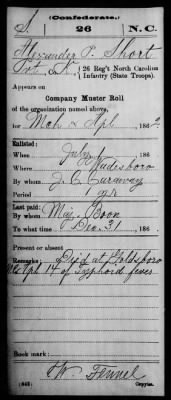 (Confederate.)
S 26 N.C.
Alexander P. Short
Pvt, Co. K, 26 Reg't North Carolina
Infantry (State Troops).
Appears on
Company Muster Roll
of the organization named above,
for Mch & Apl, 1862.
Enlisted:
When July 1, 186
Where Wadesboro
By whom J. C. Caraway
Period 1 yr
Last paid:
By whom Maj. Boon
To what time Dec. 31, 186
Present or absent
Remarks: Died at Goldsboro
NC Apl. 14 of Typhoid fever
Book mark:
W. Fennel
(642) Copyist.